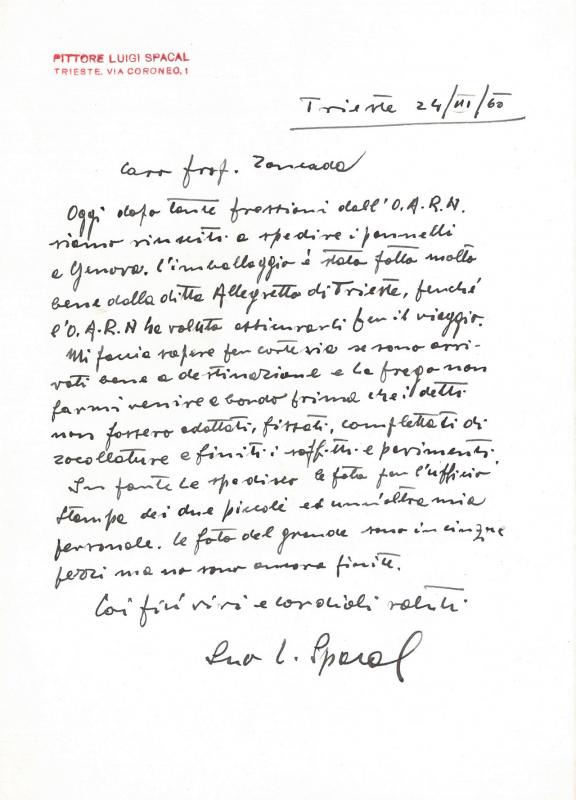 PITTORE LUIGI SPACAL
TRIESTE. VIA CORONEO, 1
Trieste 24/III/60
Caro prof. Zoncada
Oggi dopo tante pressioni dall'O.A.R.N.
siamo riusciti a spedire i pannelli
a Genova. L'imballaggio è stato fatto molto
bene dalla ditta Allegretto di Trieste, perché
l'O.A.R.N ha voluto assicurarli per il viaggio.
Mi faccia sapere per cortesia se sono arri-
vati bene a destinazione e La prego non
farmi venire a bordo prima che i detti
non fossero adattati, fissati, completati di
zocollature e finiti i soffitti e pavimenti.
In parte Le spedisco le foto per l'ufficio
Stampa dei due piccoli ed un'altra mia
personale. Le foto del grande sono in cinque
pezzi ma no sono ancora finite.
Coi più vivi e cordiali saluti
Suo L. Spacal